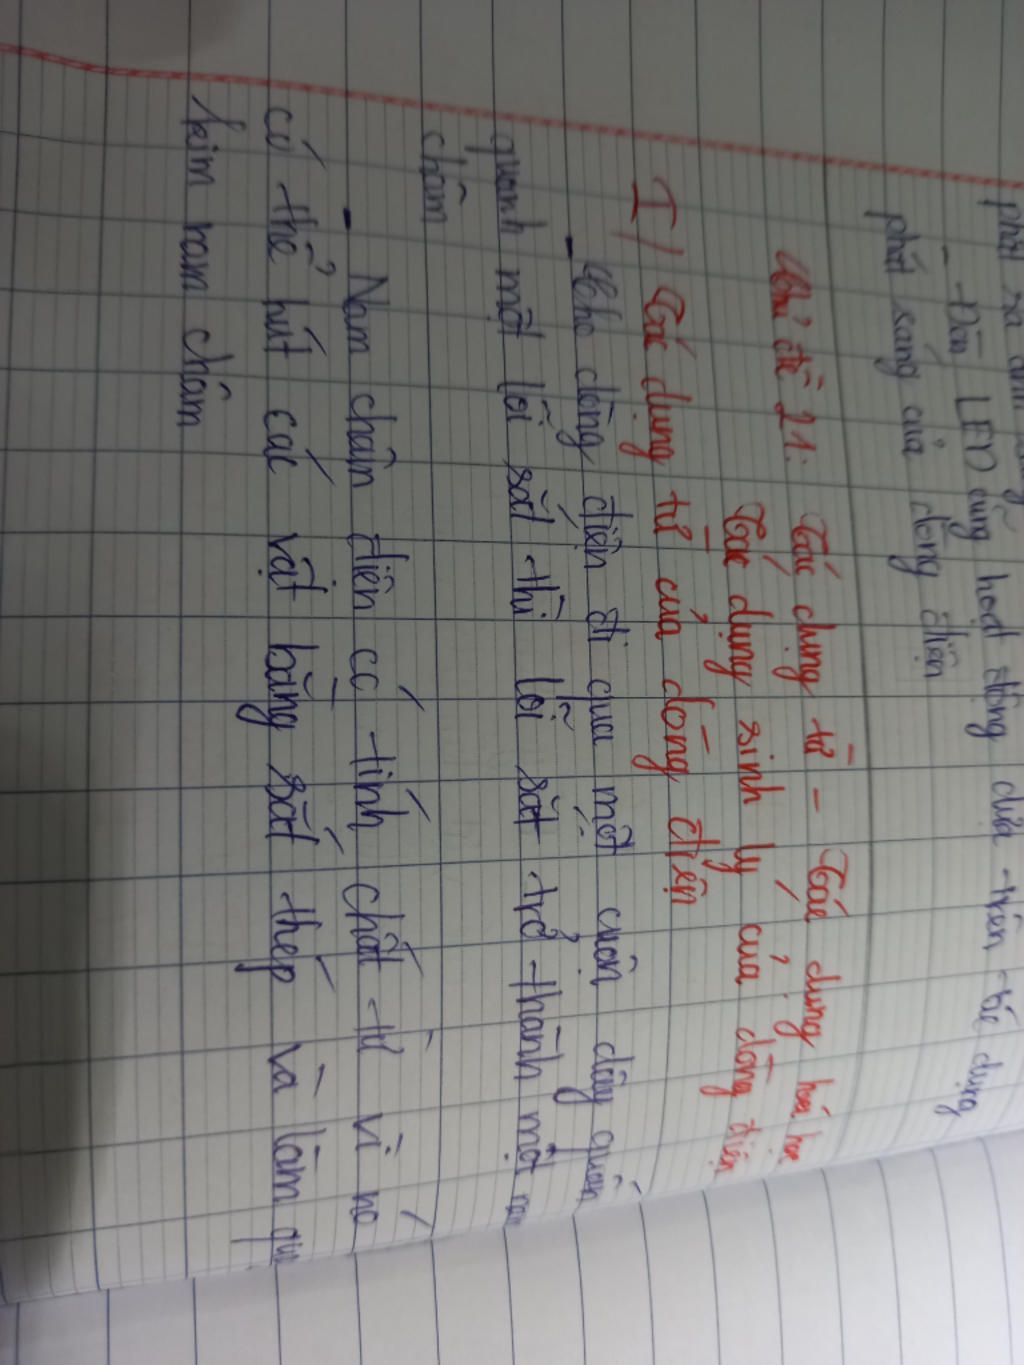 phát ra ánh
- Đèn LED cũng hoạt động dựa trên tác dụng
phát sáng của dòng điện
Chủ đề 21: Tác dụng từ - Tác dụng hoá học
Tác dụng sinh lý của dòng điện
I/ Tác dụng từ của dòng điện
- Cho dòng điện đi qua một cuộn dây quấn
quanh một lõi sắt thì lõi sắt trở thành một nam
châm
- Nam châm điện có tính chất từ vì nó
có thể hút các vật bằng sắt thép và làm quay
kim nam châm